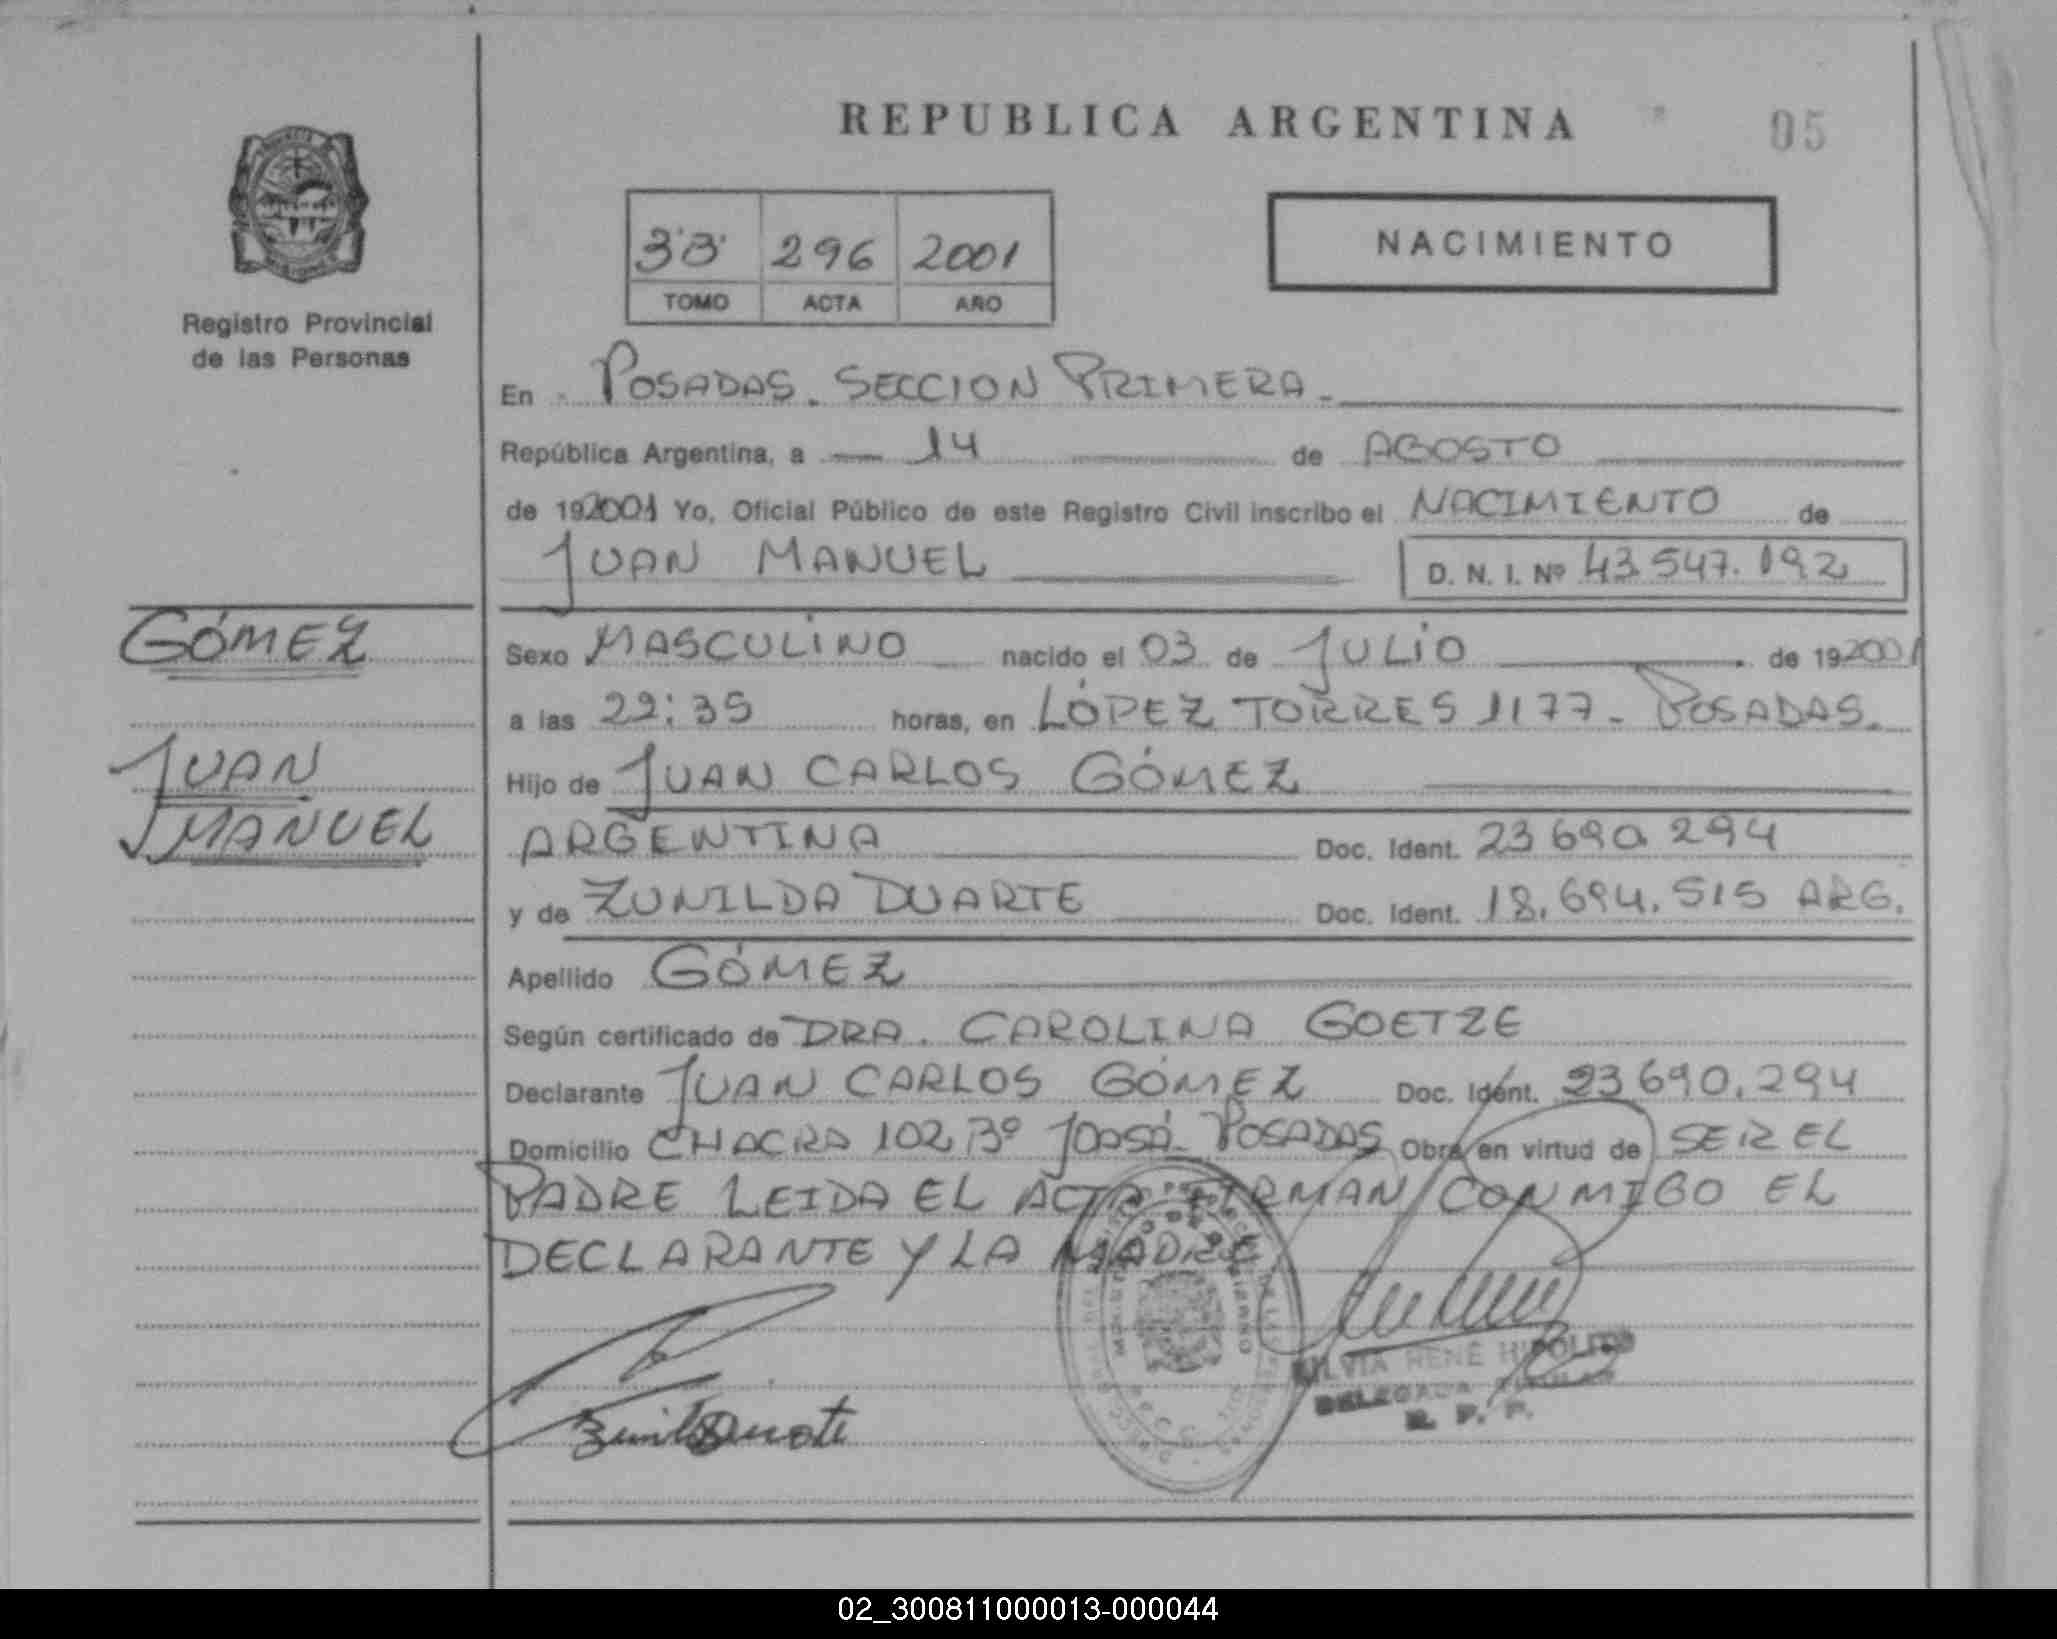 REPUBLICA ARGENTINA
05
Registro Provincial
de las Personas
296 2001
TOMO ACTA AÑO
NACIMIENTO
En POSADAS. SECCION PRIMERA.
República Argentina, a 14 de AGOSTO
de 192001 Yo, Oficial Público de este Registro Civil inscribo el NACIMIENTO de
JUAN MANUEL D. N. I. Nº 43.547.192
GÓMEZ
JUAN
MANUEL
Sexo MASCULINO nacido el 03 de JULIO de 192001
a las 22:35 horas, en LÓPEZ TORRES 1177 - POSADAS.
Hijo de JUAN CARLOS GÓMEZ
ARGENTINA Doc. Ident. 23690.294
y de ZUNILDA DUARTE Doc. Ident. 18.694.515 ARG.
Apellido GÓMEZ
Según certificado de DRA. CAROLINA GOETZE
Declarante JUAN CARLOS GÓMEZ Doc. Ident. 23690.294
Domicilio CHACRA 102 Bº POSADAS Obra en virtud de SER EL
PADRE LEIDA EL ACTA FIRMAN CONMIGO EL
DECLARANTE Y LA MADRE
SILVIA RENE HIPOLITO
DELEGADA TITULAR
R. P. P.
02_300811000013-000044